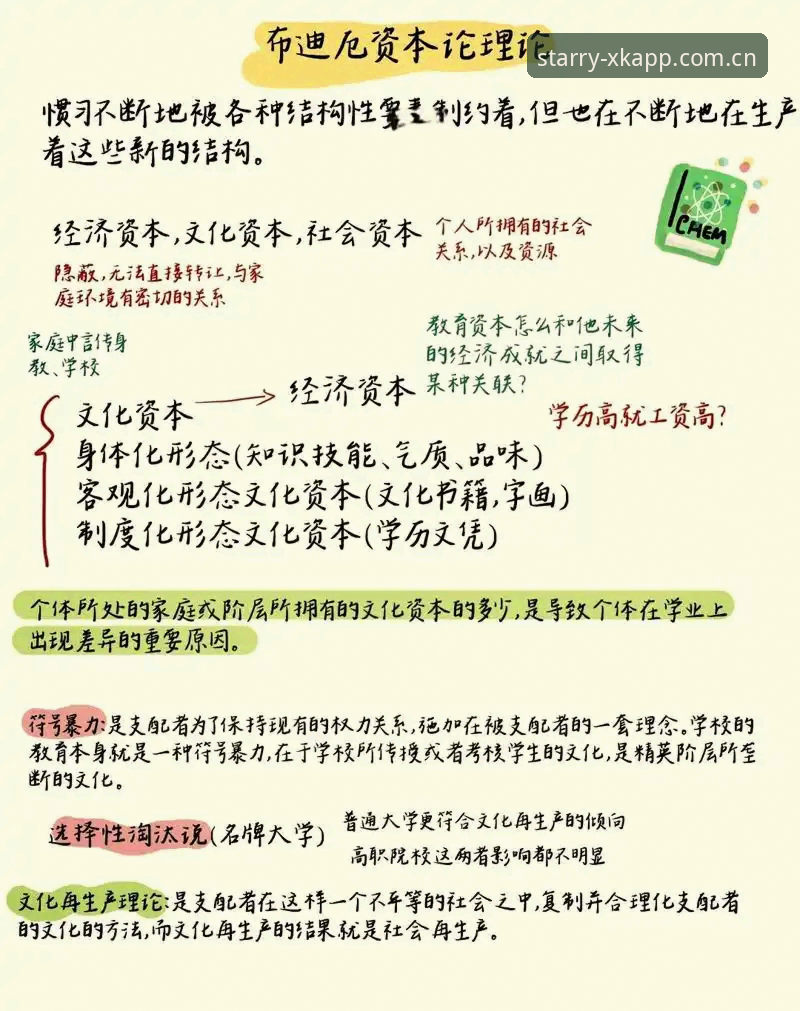 布迪厄资本论理论
starry-xkapp.com.cn
惯习不断地被各种结构性要素制约着,但也在不断地在生产
着这些新的结构。
CHEM
经济资本,文化资本,社会资本
个人所拥有的社会
关系,以及资源
隐蔽,无法直接转让,与家
庭环境有密切的关系
家庭中言传身
教、学校
教育资本怎么和他未来
的经济成就之间取得
某种关联?
文化资本
经济资本
学历高就工资高?
身体化形态(知识技能、气质、品味)
客观化形态文化资本(文化书籍,字画)
制度化形态文化资本(学历文凭)
个体所处的家庭或阶层所拥有的文化资本的多少,是导致个体在学业上
出现差异的重要原因。
符号暴力:是支配者为了保持现有的权力关系,施加在被支配者的一套理念。学校的
教育本身就是一种符号暴力,在于学校所传授或者考核学生的文化,是精英阶层所垄
断的文化。
选择性淘汰说(名牌大学)
普通大学更符合文化再生产的倾向
高职院校这两者影响都不明显
文化再生产理论:是支配者在这样一个不平等的社会之中,复制并合理化支配者
的文化的方法,而文化再生产的结果就是社会再生产。